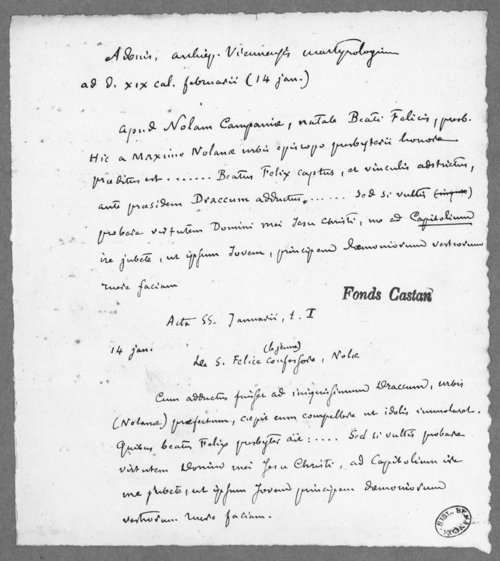 Adonis, archiep. Viennensis martyrologium
ad d. XIX cal. februarii (14 jan.)
Apud Nolam Campaniæ, natale Beati Felicis, presb.
Hic a Maximo Nolanæ urbis episcopo presbyterii honore
præditus est ....... Beatus Felix captus, et vinculis adstrictus,
ante præsidem Draccum adductus....... Sed si vultis
probare virtutem Domini mei Jesu Christi, me ad Capitolium
ire jubete, ut ipsum Jovem, principem dæmoniorum vestrorum
ruere faciam
Fonds Castan
Acta SS. Januarii, t. I
14 jan.
De S. Felice confessore, Nolæ
Cum adductus fuisset ad iniquissimum Draccum, urbis
(Nolanæ) præfectum, cœpit eum compellere ut idolis immolaret.
Quibus beatus Felix presbyter ait: ..... Sed si vultis probare
virtutem Domini mei Jesu Christi, ad Capitolium ire
me jubete, ut ipsum Jovem principem dæmoniorum
vestrorum ruere faciam.